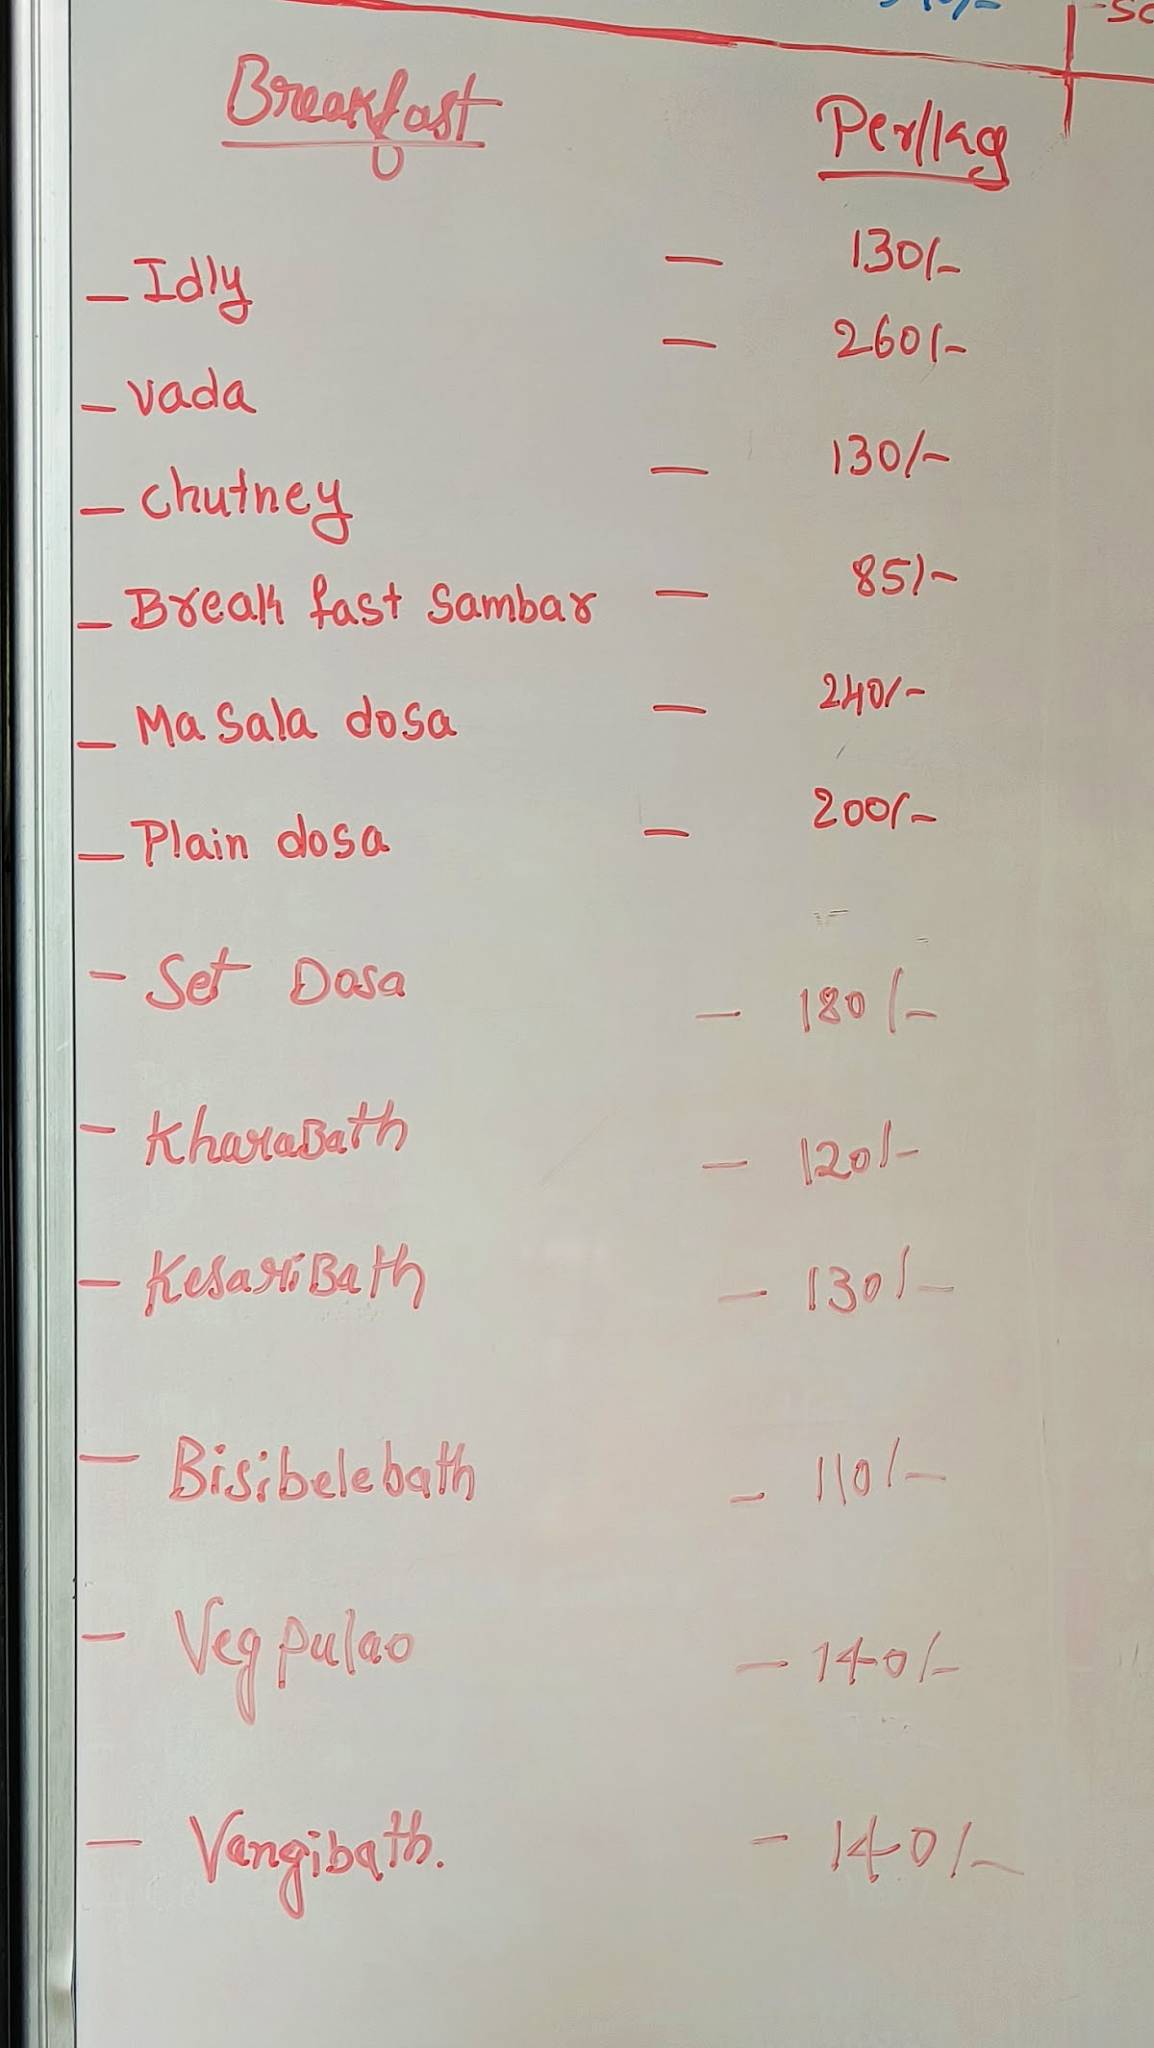 Breakfast Per/1kg
- Idly - 130/-
- vada - 260/-
- chutney - 130/-
- Break fast Sambar - 85/-
- Masala dosa - 240/-
- Plain dosa - 200/-
- Set Dosa - 180/-
- KharaBath - 120/-
- KesariBath - 130/-
- Bisibelebath - 110/-
- Veg pulao - 140/-
- Vangibath. - 140/-